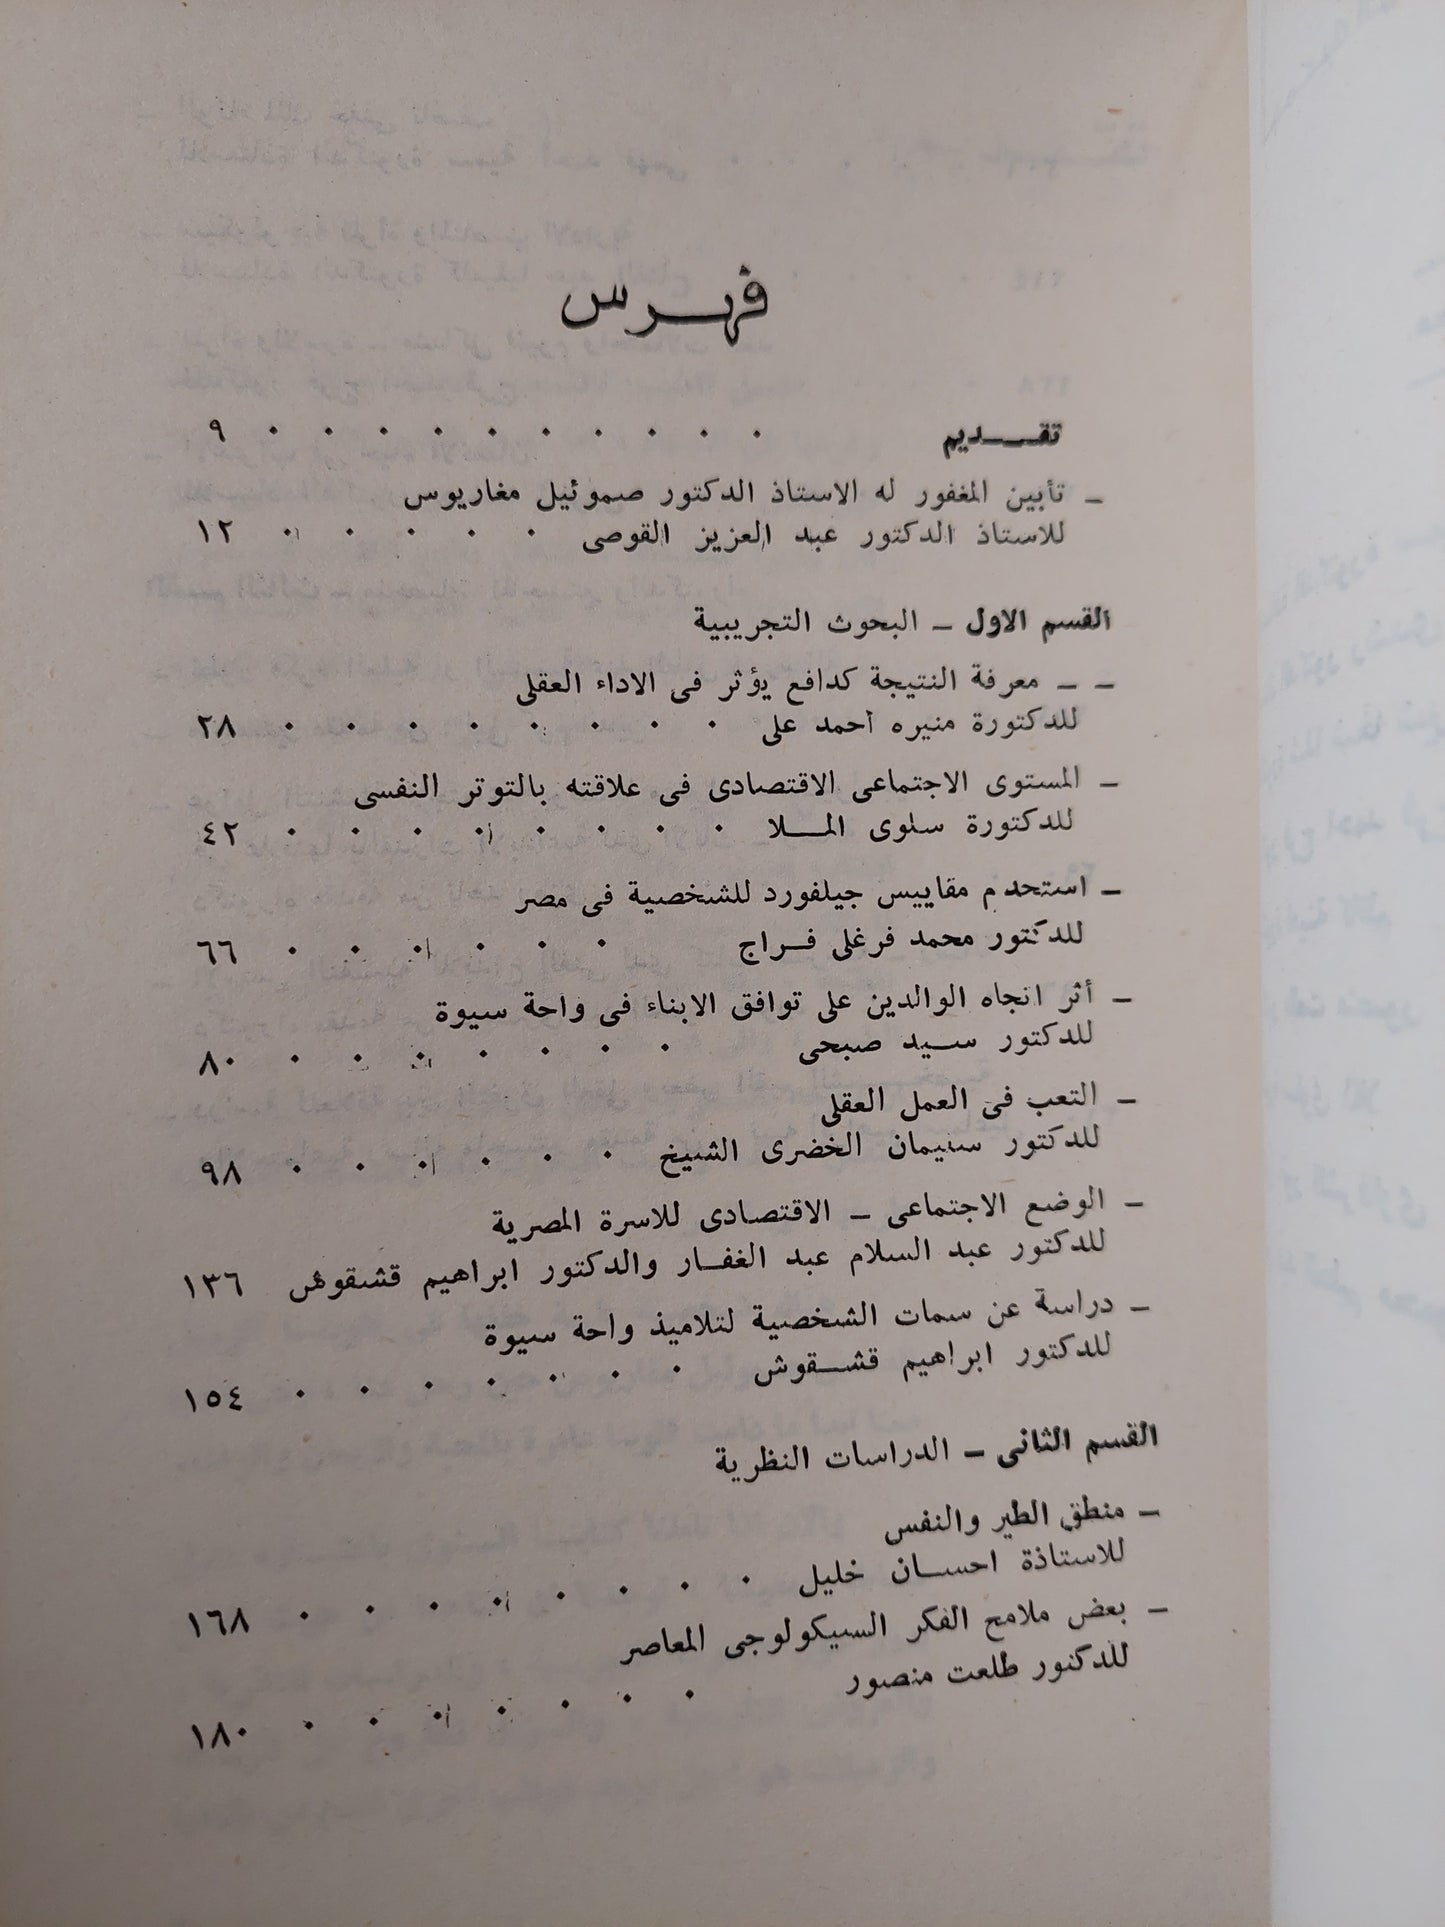 فهرس
تقـــديم ٩
ـ تأبين المغفور له الاستاذ الدكتور صموئيل مغاريوس
للاستاذ الدكتور عبد العزيز القوصى ١٢
القسم الاول ـ البحوث التجريبية
ـ ـ معرفة النتيجة كدافع يؤثر فى الاداء العقلى
للدكتورة منيره أحمد على ٢٨
ـ المستوى الاجتماعى الاقتصادى فى علاقته بالتوتر النفسى
للدكتورة سلوى المـلا ٤٢
ـ استحدم مقاييس جيلفورد للشخصية فى مصر
للدكتور محمد فرغلى فـراج ٦٦
ـ أثر اتجاه الوالدين على توافق الابناء فى واحة سيوة
للدكتور سـيد صبحى ٨٠
ـ التعب فى العمل العقلى
للدكتور سنيمان الخضرى الشيخ ٩٨
ـ الوضع الاجتماعى ـ الاقتصادى للاسرة المصرية
للدكتور عبد السلام عبد الغفـار والدكتور ابراهيم قشقوش ١٣٦
ـ دراسة عن سمات الشخصية لتلاميذ واحة سيوة
للدكتور ابراهيم قشـقوش ١٥٤
القسم الثانى ـ الدراسات النظرية
ـ منطق الطير والنفس
للاستاذة احسـان خليل ١٦٨
ـ بعض ملامح الفكر السيكولوجى المعاصر
للدكتور طلعت منصور ١٨٠